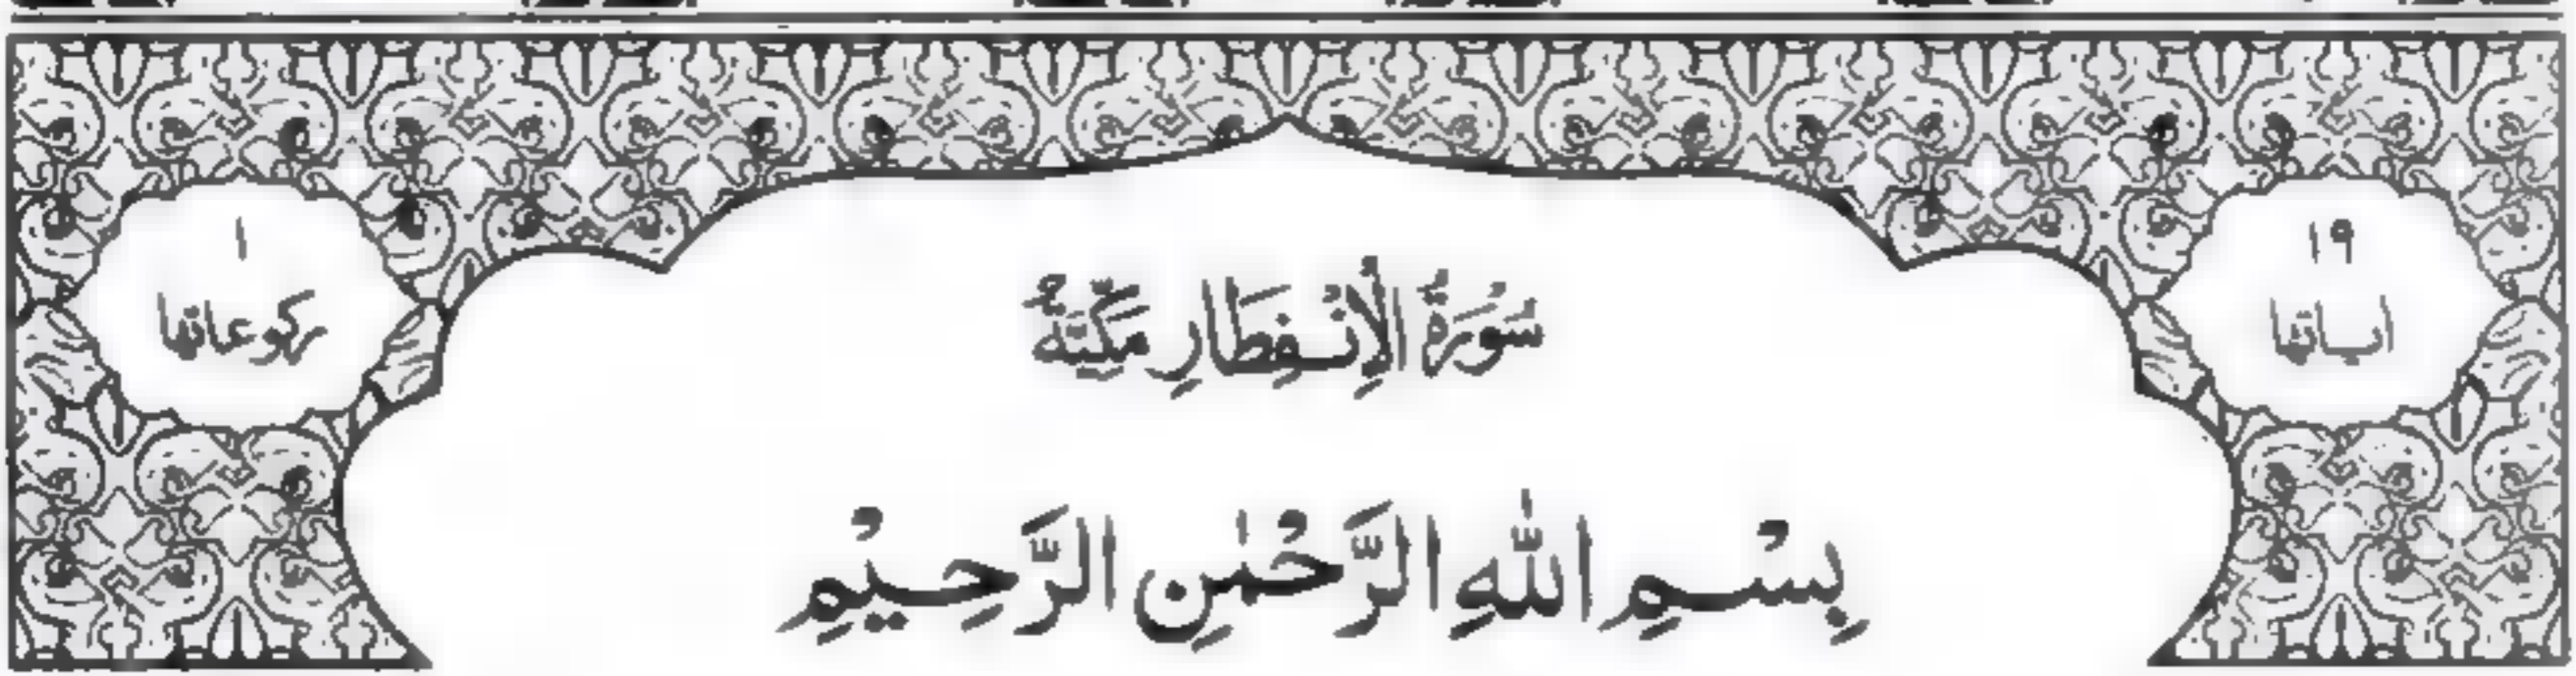 ١٩
اٰیاتها
سُوْرَةُ الْاِنْفِطَارِ مَكِّیَّةٌ
١
ركوعاتها
بِسْمِ اللّٰهِ الرَّحْمٰنِ الرَّحِیْمِ